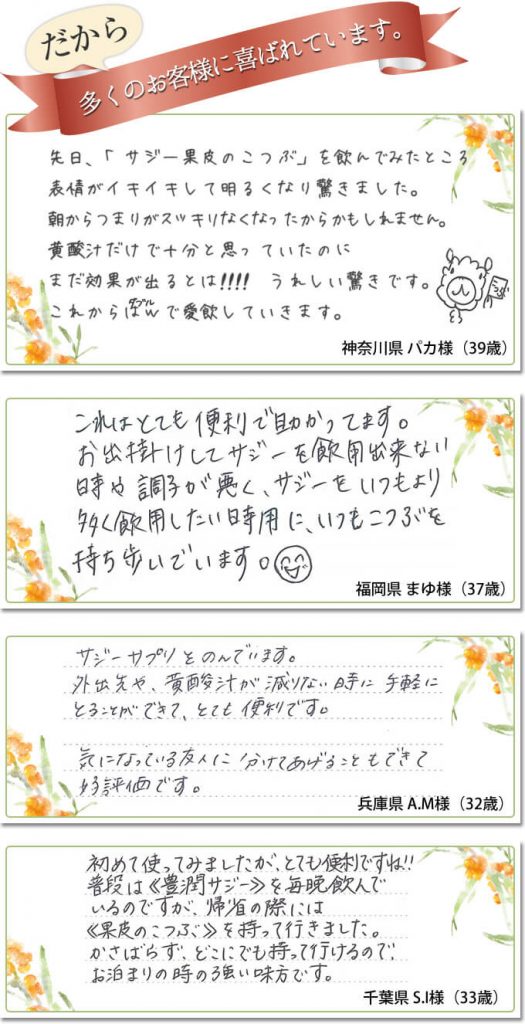 だから
多くのお客様に喜ばれています。
先日、「サジー果皮のこつぶ」を飲んでみたところ
表情がイキイキして明るくなり驚きました。
朝からつまりがスッキリなくなったからかもしれません。
黄酸汁だけで十分と思っていたのに
まだ効果が出るとは!!!! うれしい驚きです。
これからはWで愛飲していきます。
ダブル
神奈川県 パカ様（39歳）
これはとても便利で助かってます。
お出掛けしてサジーを飲用出来ない
時や調子が悪く、サジーをいつもより
多く飲用したい時用に、いつもこつぶを
持ち歩いでいます。
福岡県 まゆ様（37歳）
サジーサプリをのんでいます。
外出先や、黄酸汁が減りない時に手軽に
とることができて、とても便利です。
気になっている友人に分けてあげることもできて
好評価です。
兵庫県 A.M様（32歳）
初めて使ってみましたが、とても便利ですね!!
普段は《豊潤サジー》を毎晩飲んで
いるのですが、帰省の際には
《果皮のこつぶ》を持って行きました。
かさばらず、どこにでも持って行けるので、
お泊まりの時の強い味方です。
千葉県 S.I様（33歳）